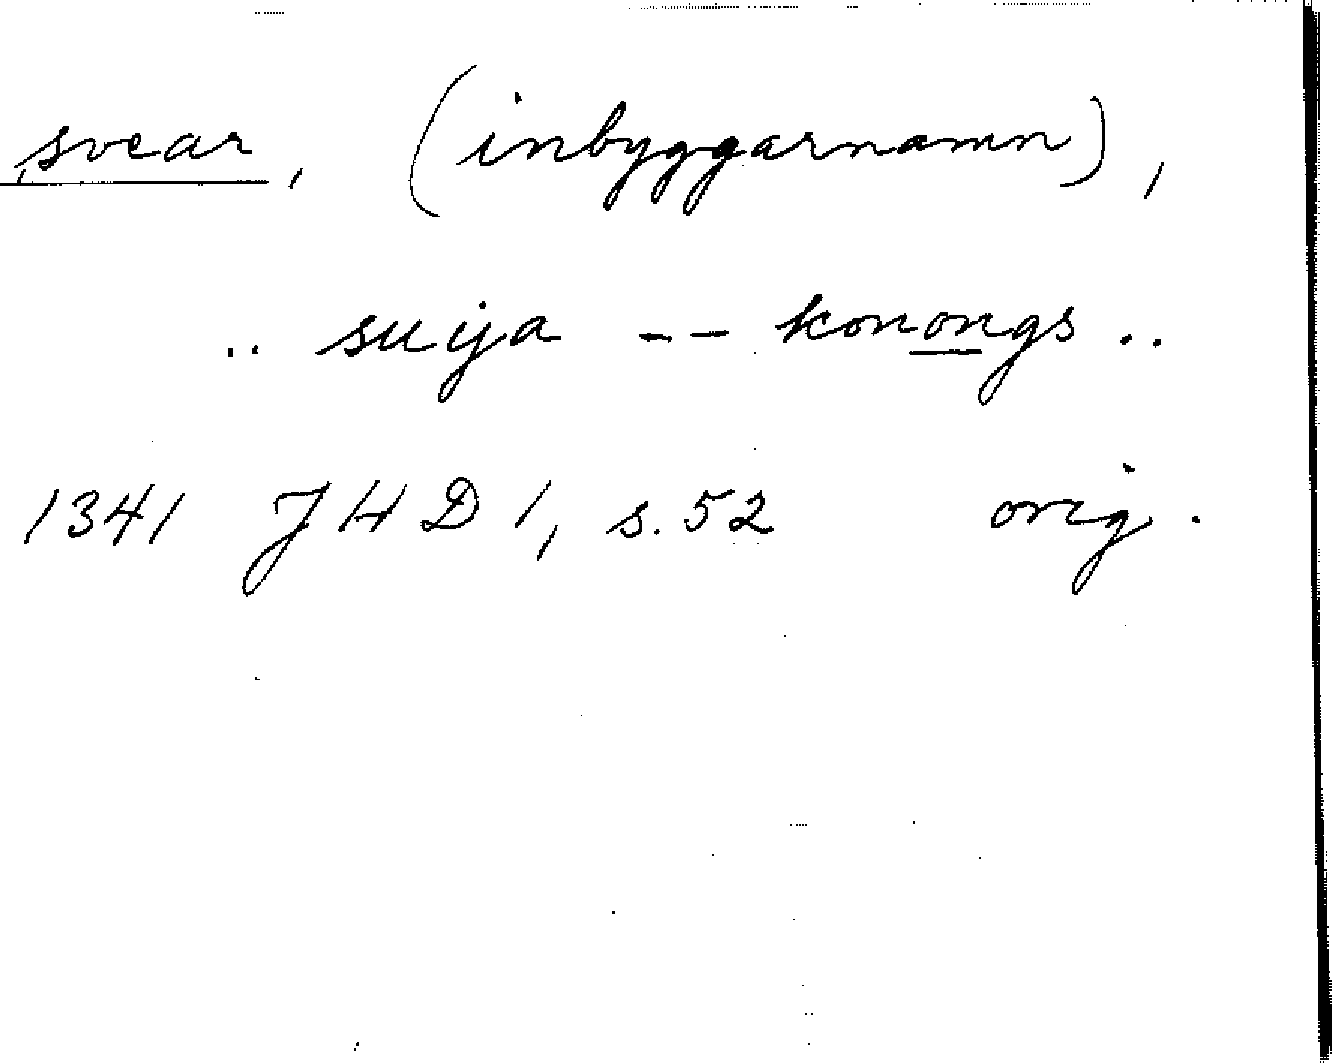 svear, (inbyggarnamn),
.. suija -- konongs ..
1341 JHD 1, s. 52 orig.